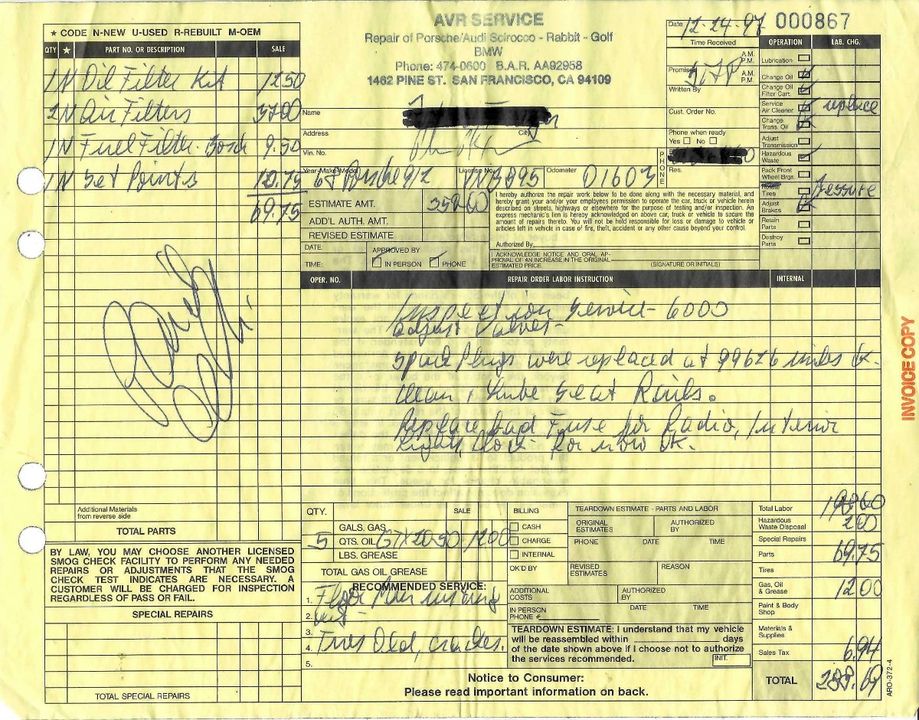 AVR SERVICE
Repair of Porsche/Audi Scirocco - Rabbit - Golf
BMW
Phone: 474-0600 B.A.R. AA92958
1462 PINE ST. SAN FRANCISCO, CA 94109
Date 12-24-97 000867
★ CODE N-NEW U-USED R-REBUILT M-OEM
QTY ★ PART NO. OR DESCRIPTION SALE
1 N Oil Filter Kit 12.50
2 N Air Filters 37.00
1 N Fuel Filter - Bosch 9.50
1 N Set Points 10.75
69.75
Additional Materials
from reverse side
TOTAL PARTS
BY LAW, YOU MAY CHOOSE ANOTHER LICENSED
SMOG CHECK FACILITY TO PERFORM ANY NEEDED
REPAIRS OR ADJUSTMENTS THAT THE SMOG
CHECK TEST INDICATES ARE NECESSARY. A
CUSTOMER WILL BE CHARGED FOR INSPECTION
REGARDLESS OF PASS OR FAIL.
SPECIAL REPAIRS
TOTAL SPECIAL REPAIRS
Time Received A.M. P.M.
Promised A.M. P.M.
Written By
Cust. Order No.
Phone when ready
Yes No
PHONE
Res.
Name
Address City
Vin. No.
Year-Make-Model Porsche 912 License No. Odometer 01603
ESTIMATE AMT.
ADD'L AUTH. AMT.
REVISED ESTIMATE
DATE APPROVED BY
TIME: IN PERSON PHONE
I hereby authorize the repair work below to be done along with the necessary material, and
hereby grant you and/or your employees permission to operate the car, truck or vehicle herein
described on streets, highways or elsewhere for the purpose of testing and/or inspection. An
express mechanic's lien is hereby acknowledged on above car, truck or vehicle to secure the
amount of repairs thereto. You will not be held responsible for loss or damage to vehicle or
articles left in vehicle in case of fire, theft, accident or any other cause beyond your control.
Authorized By
ACKNOWLEDGE NOTICE AND ORAL AP-
PROVAL OF AN INCREASE IN THE ORIGINAL
ESTIMATED PRICE. (SIGNATURE OR INITIALS)
OPERATION LAB. CHG.
Lubrication
Change Oil
Change Oil
Filter Cart.
Service
Air Cleaner replace
Change
Trans. Oil
Adjust
Transmission
Hazardous
Waste
Pack Front
Wheel Brgs.
Tires
Adjust
Brakes
Retain
Parts
Destroy
Parts
OPER. NO. REPAIR ORDER LABOR INSTRUCTION INTERNAL
Inspection Service - 6000
adjust Valves -
Spark Plugs were replaced at 99626 miles ok.
Clean, Lube Seat Rails.
Replace bad Fuse for Radio, Interior
Lights, Clock - for now ok.
INVOICE COPY
QTY. SALE
GALS. GAS
5 QTS. OIL GTX 20-50 12.00
LBS. GREASE
TOTAL GAS OIL GREASE
RECOMMENDED SERVICE:
1.
2.
3.
4. Tires Old, cracks.
5.
BILLING
CASH
CHARGE
INTERNAL
OK'D BY
ADDITIONAL
COSTS
IN PERSON
PHONE #
TEARDOWN ESTIMATE - PARTS AND LABOR
ORIGINAL
ESTIMATES
AUTHORIZED
BY
PHONE DATE TIME
REVISED
ESTIMATES
REASON
AUTHORIZED
BY
DATE TIME
TEARDOWN ESTIMATE: I understand that my vehicle
will be reassembled within days
of the date shown above if I choose not to authorize
the services recommended. INIT.
Total Labor
Hazardous
Waste Disposal 2.00
Special Repairs
Parts 69.75
Tires
Gas, Oil
& Grease 12.00
Paint & Body
Shop
Materials &
Supplies
Sales Tax 6.94
TOTAL 288.69
ARO-372-4
Notice to Consumer:
Please read important information on back.